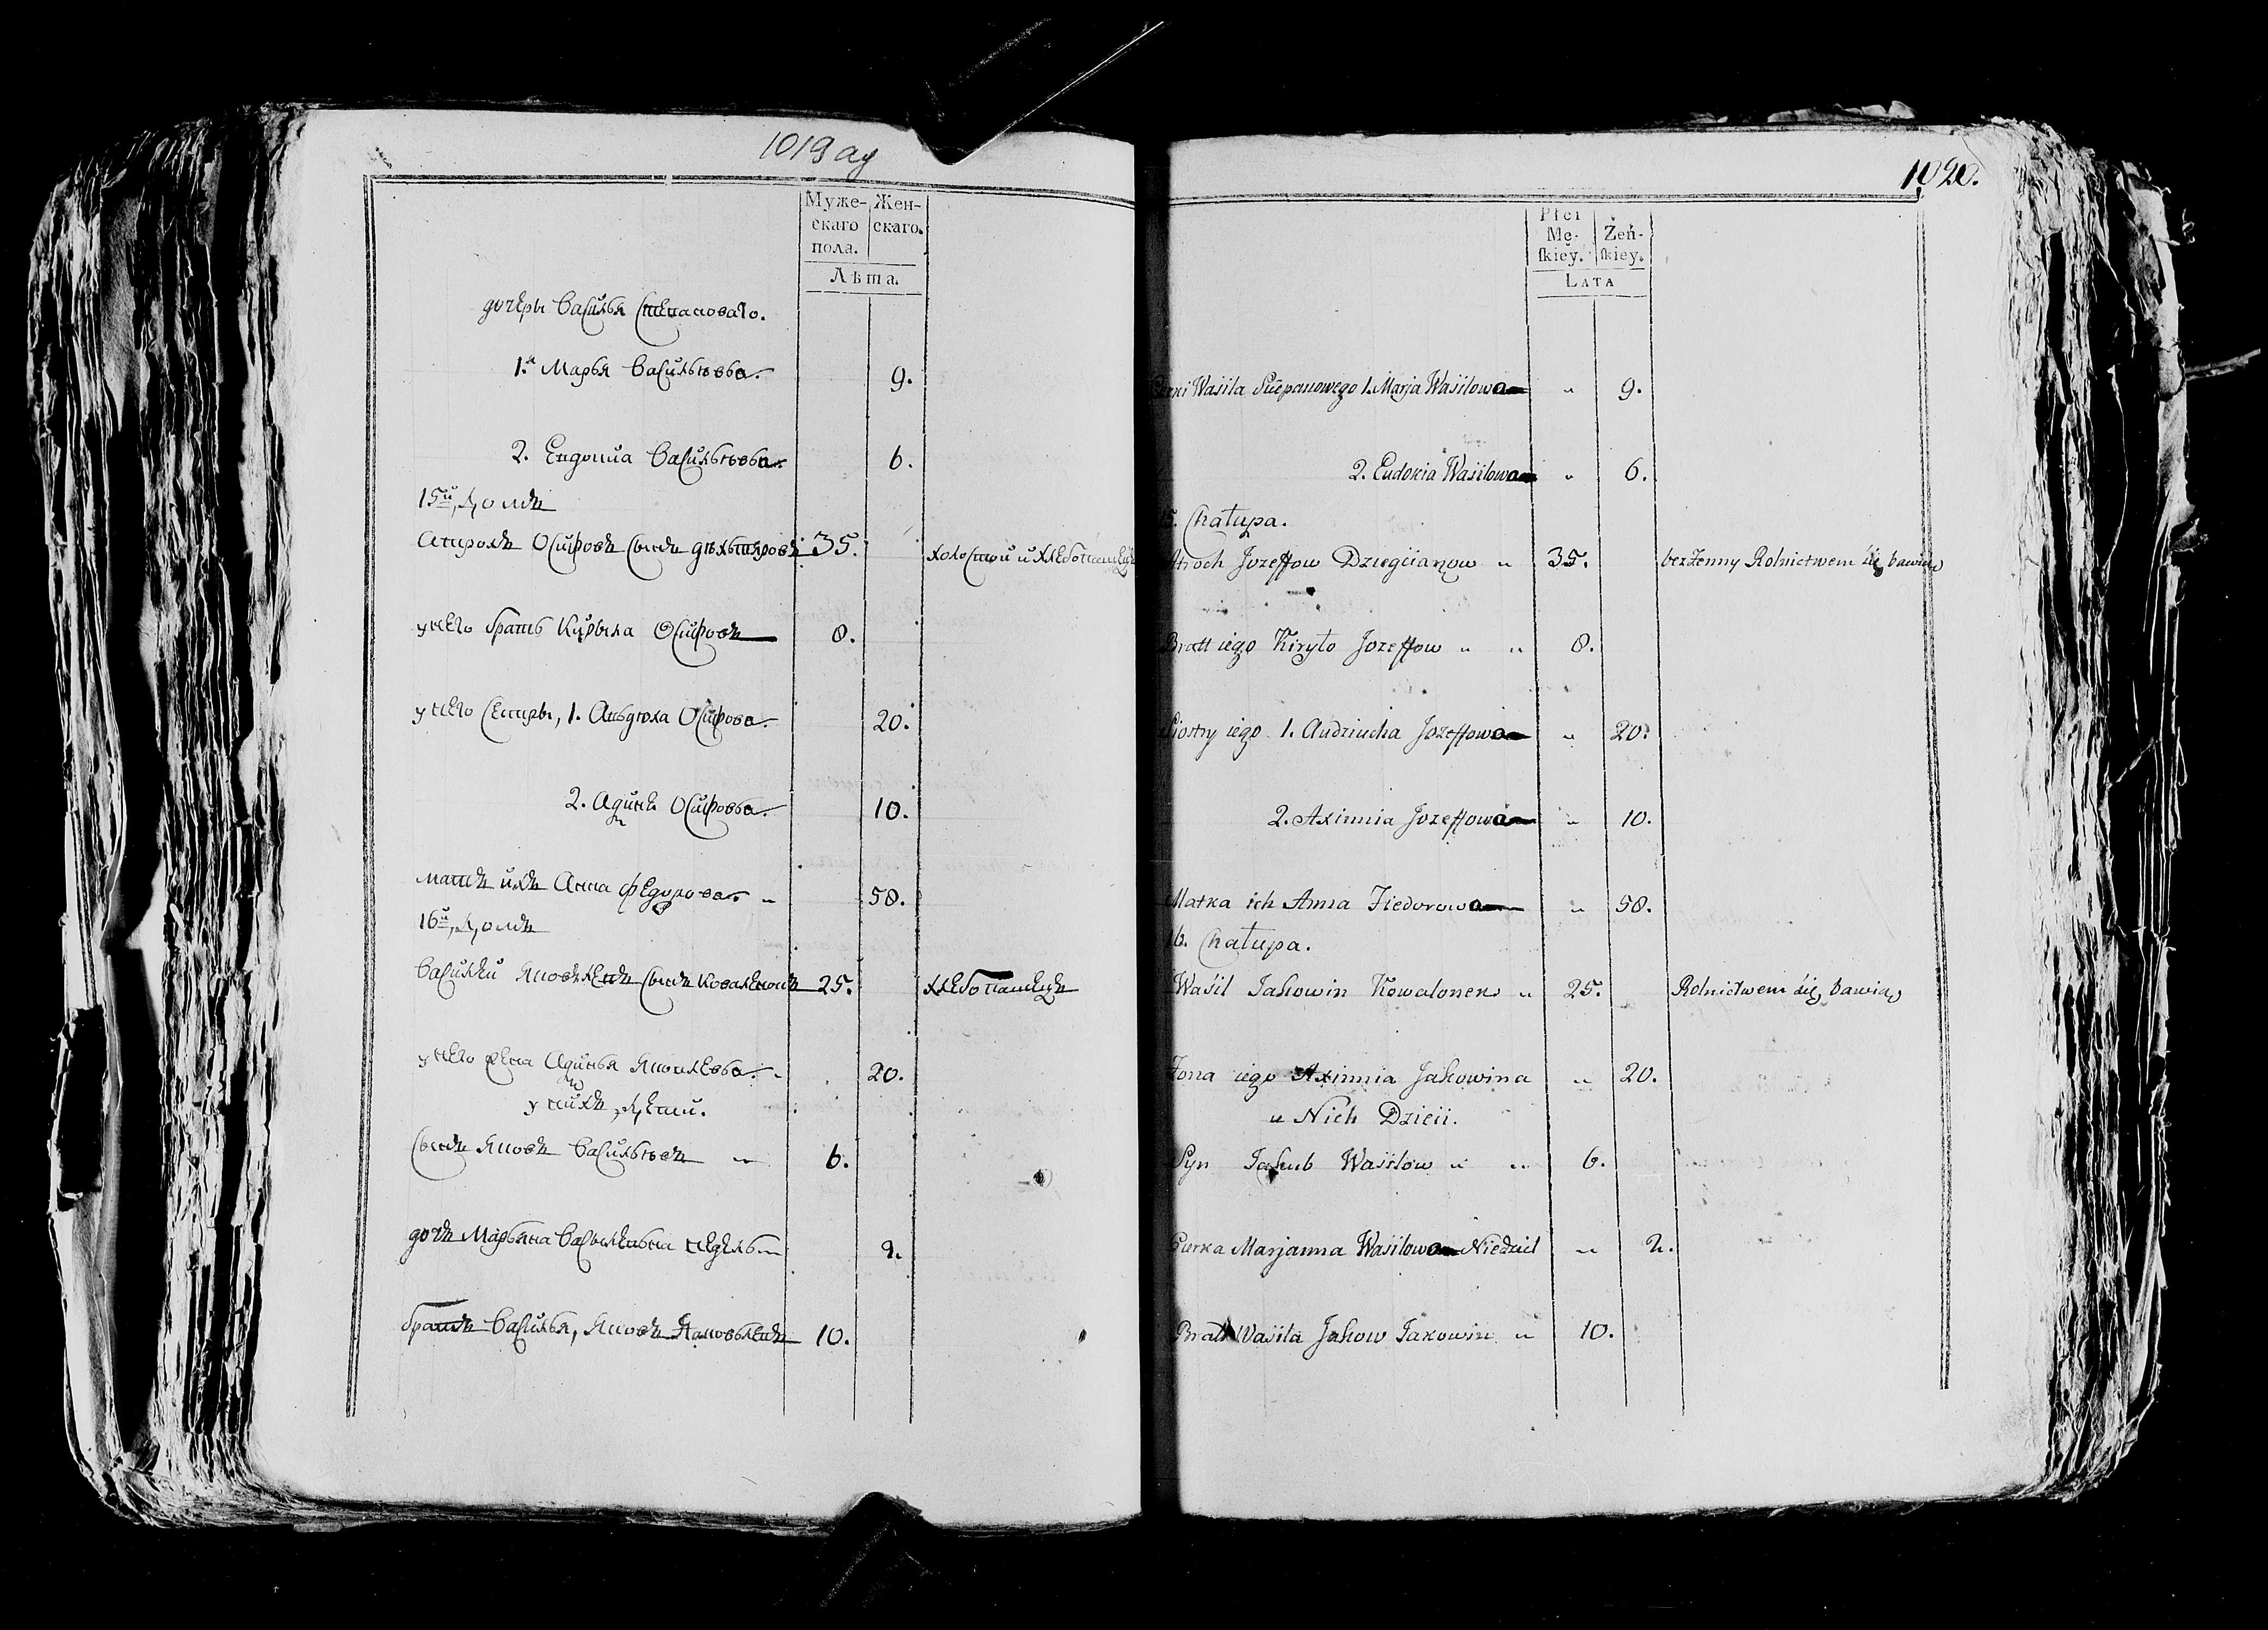 1019 ау
Муже- Жен-
скаго скаго.
пола.
Лѣта.
дочеры Василья Степановаго.
1.я Марья Васильѣва. 9.
2. Евдокиа Васильѣва. 6.
15й Домъ
Атрохъ Осифовъ сынъ 35. холостой и хлебопашецъ
у него братъ Курыла Осифовъ 8.
у него сестры, 1. Авдюха Осифова. 20.
2. Осифова. 10.
матъ ихъ Анна Федорова. „ 50.
16й Домъ
Василей Яковълевъ сынъ Коваленокъ 25. хлебопашецъ
у него жена Яковлева. 20.
у нихъ Дети.
сынъ Яковъ Васильѣвъ „ 6.
дочъ Марьяна недель 2.
братъ Василья, Яковъ Яковълевъ 10.
1020.
Płci
Mę- Żeń-
skiey. skiey.
LATA
Wasila Sciepanowego 1. Marja Wasilowa „ 9.
2. Eudokia Wasilowa „ 6.
15. Chałupa.
Atroch Jozeffow Dziegcianow „ 35. bezżenny Rolnictwem się bawią
Bratt iego Kiryło Jozeffow „ „ 8.
Siostry iego 1. Audziucha Jozeffowa „ 20.
2. Aximia Jozeffowa „ 10.
Matka ich Anna Fiedorowa „ 50.
16. Chałupa.
Wasil Jakowin Kowalonek „ 25. Rolnictwem się bawią
Żona iego Aximia Jakowina „ 20.
u Nich Dzieii.
Syn Jakub Wasilow „ „ 6.
Curka Marjanna Wasilowa Niedziel „ 2.
Bratt Wasila Jakow Jakowin „ 10.